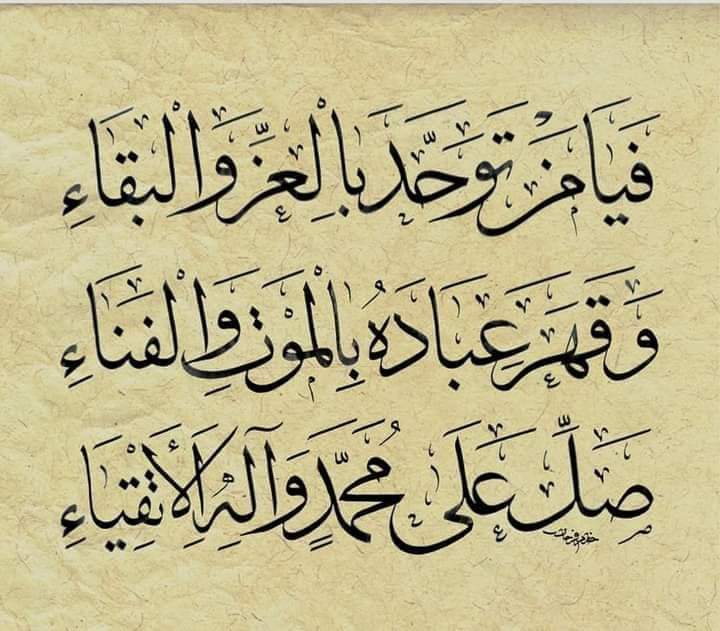 فَيَا مَنْ تَوَحَّدَ بِالْعِزِّ وَالْبَقَاءِ
وَقَهَرَ عِبَادَهُ بِالْمَوْتِ وَالْفَنَاءِ
صَلِّ عَلَى مُحَمَّدٍ وَآلِهِ الْأَتْقِيَاءِ